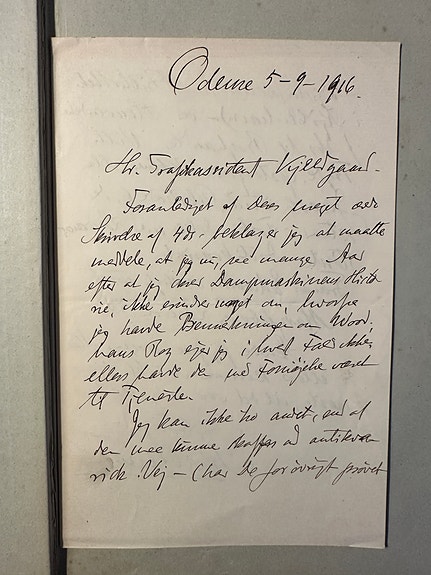 Odense 5-9-1916.
Hr. Trafikassistent Kjeldgaard.
Foranlediget af Deres meget ærede
Skrivelse af 4ds. beklager jeg at maatte
meddele, at jeg nu, saa mange Aar
efter at jeg skrev Dampmaskinens Histo-
rie, ikke erindrer noget om, hvorfra
jeg havde Bemærkningen om Wood,
hans Bog ejer jeg i hvert Fald ikke,
ellers havde den med Fornøjelse været
til Tjeneste.
Jeg kan ikke tro andet, end at
den maa kunne skaffes ad antikva-
risk Vej - (har De forøvrigt prøvet